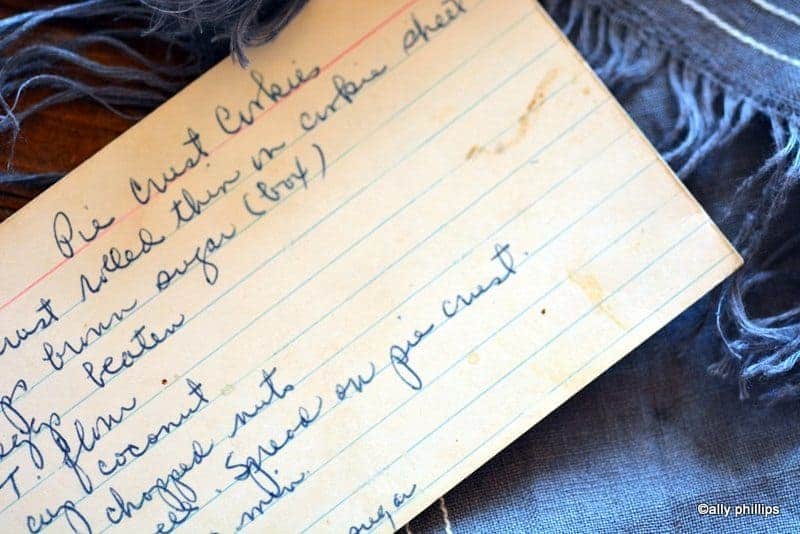 Pie crust Cookies
crust rolled thin on cookie sheet
brown sugar (box)
eggs beaten
T. flour
cup coconut
chopped nuts
Spread on pie crust.
min.
sugar
©ally phillips